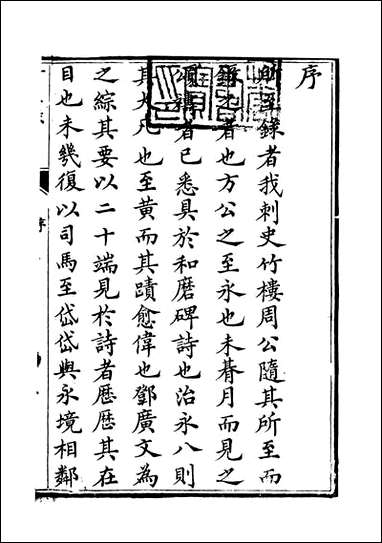 序
所至錄者我刺史竹樓周公隨其所至而
錄之者也方公之至永也未朞月而見之
者已悉具於和磨碑詩也治永八則
其大凡也至黃而其蹟愈偉也鄧廣文為
之綜其要以二十端見於詩者歷歷其在
目也未幾復以司馬至岱岱與永境相鄰
序